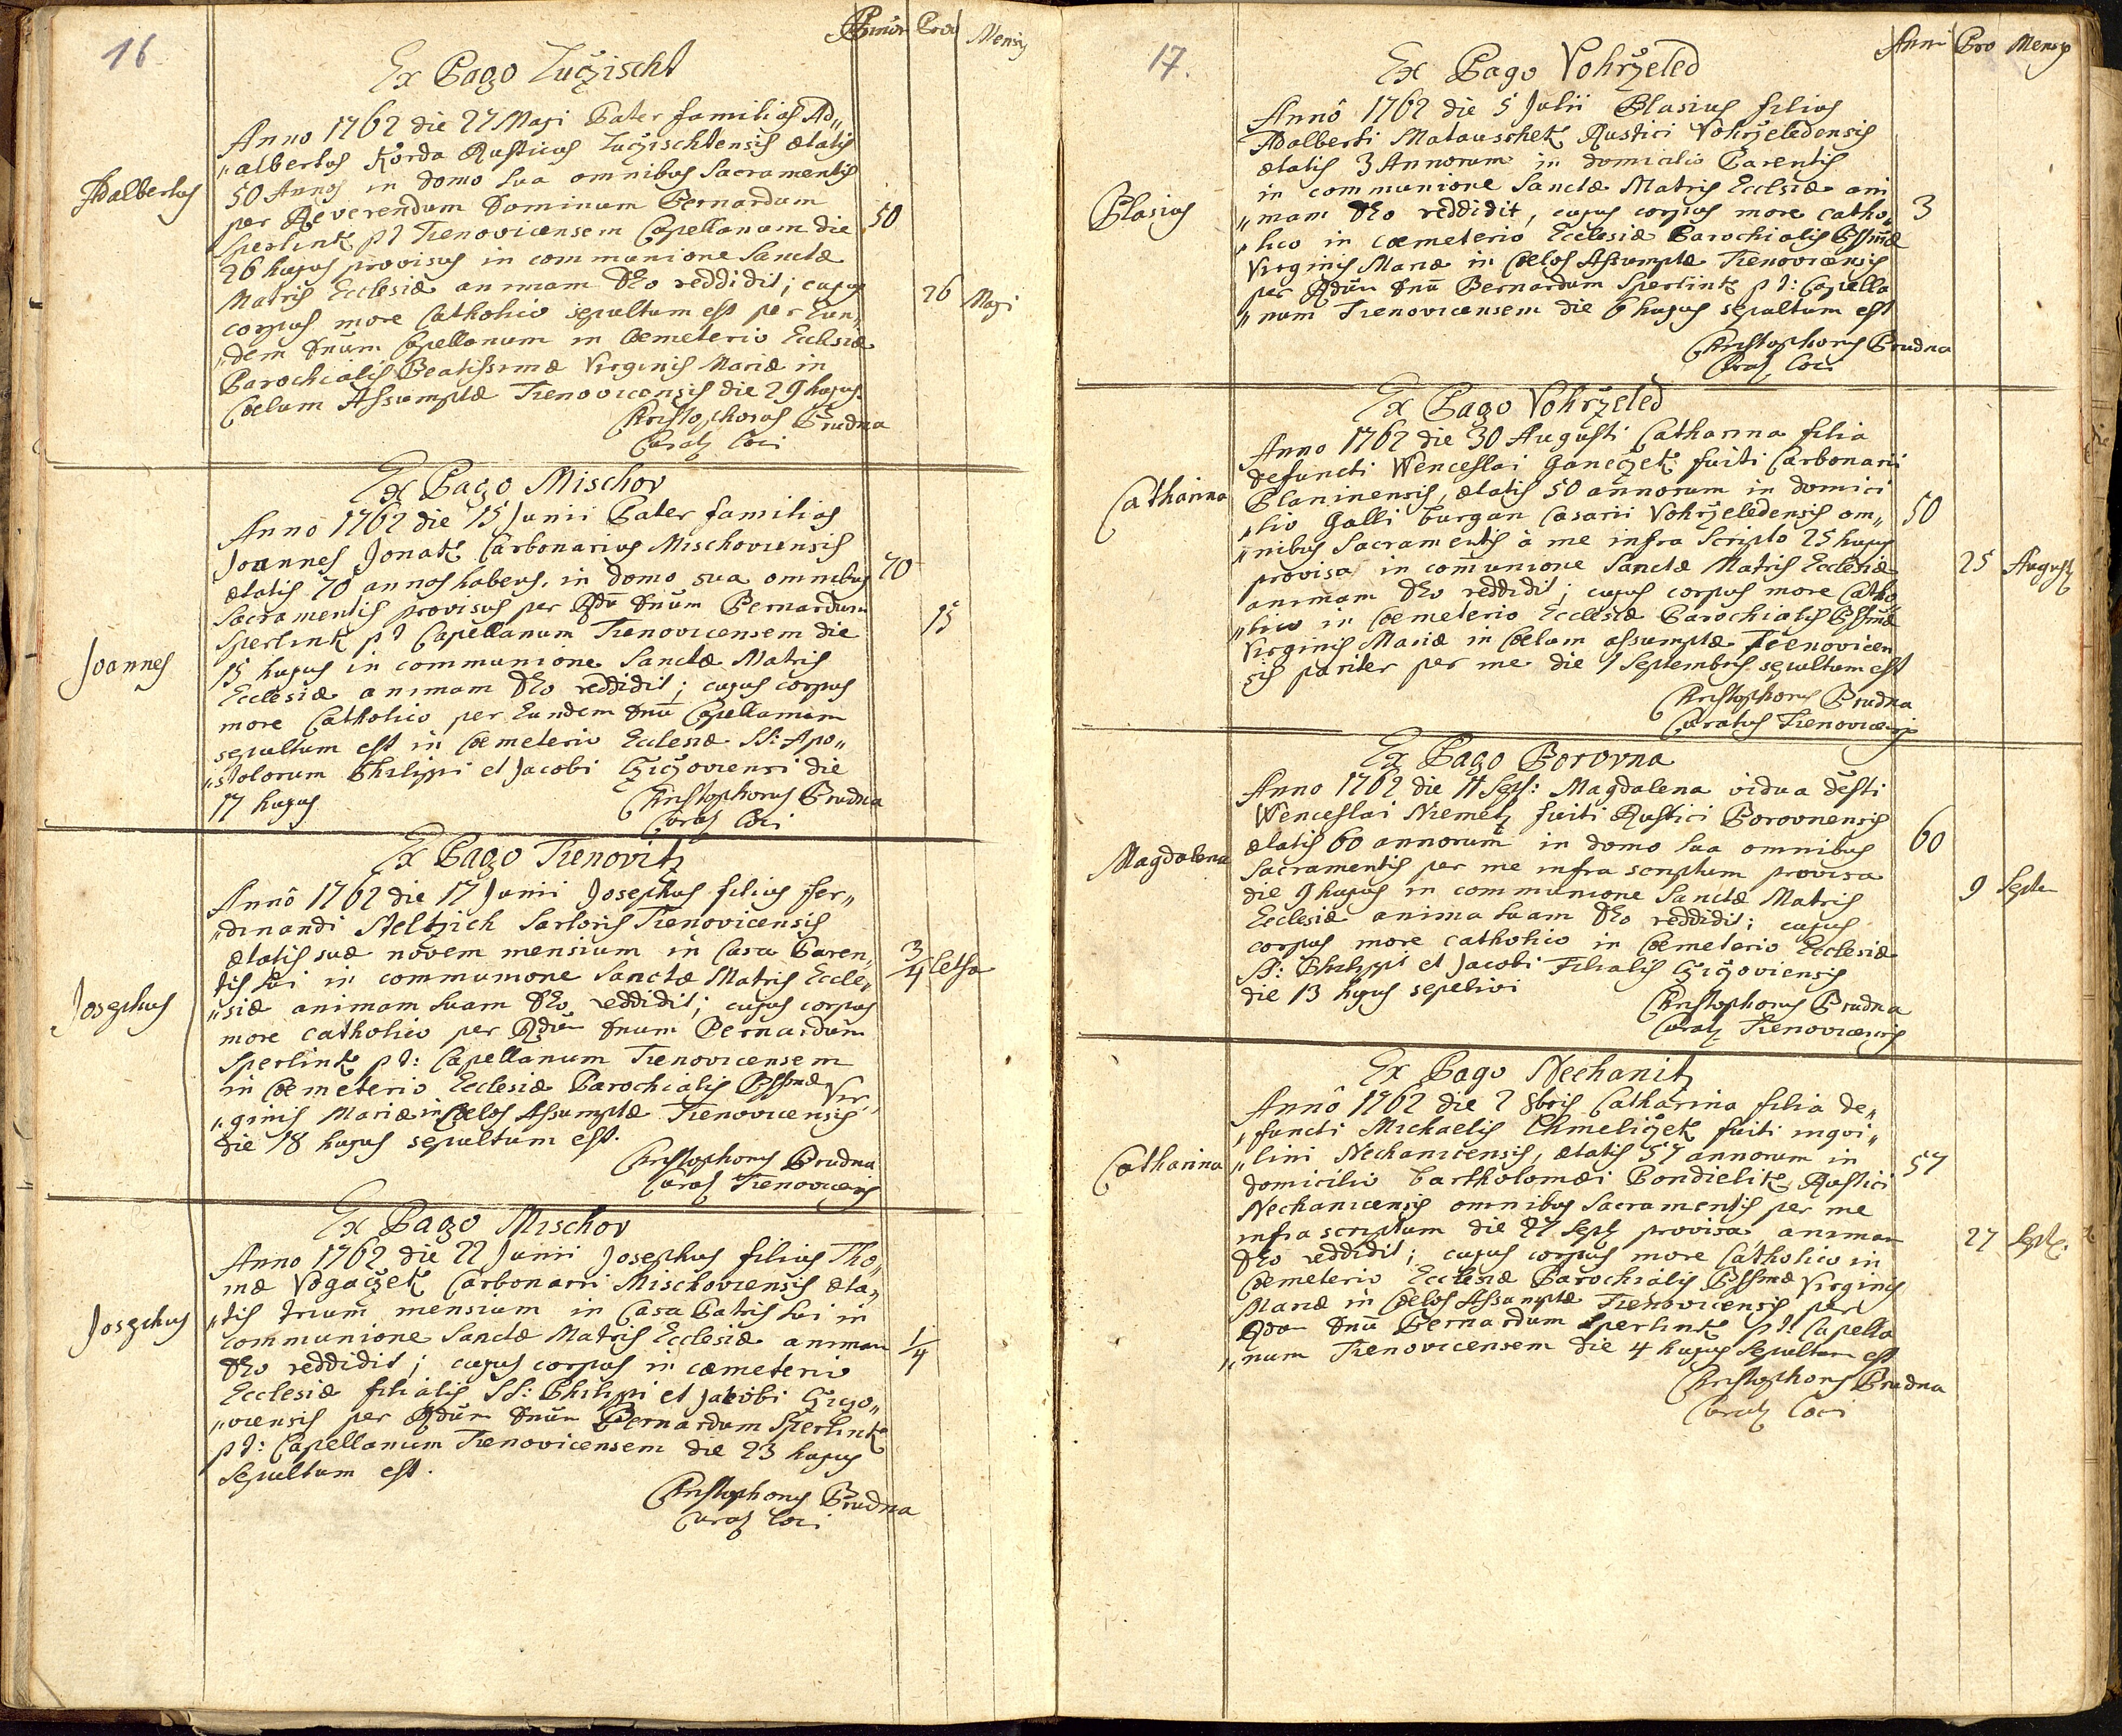 16
Annor Provi Mensis
Ex Pago Luczischt
Adalbertus
Anno 1762 die 27 Maji Pater familias Ad„
„albertus Korda Rusticus Luczischtensis ætatis
50 Annos in domo sua omnibus Sacramentis
per Reverendum Dominum Bernardum
Sperlink pt Tienovicensem Capellanum die
26 hujus provisus in communione Sanctæ
Matris Ecclesiæ animam Deo reddidit; cujus
corpus more Catholico sepultum est per Eun„
„dem Dnum Capellanum in Coemeterio Ecclesiæ
Parochialis Beatissimæ Virginis Mariæ in
Coelum Assumptæ Tienovicensis die 29 hujus.
50
26 Maji
Christophorus Prudna
Curatg Loci
Ex Pago Mischov
Joannes
Anno 1762 die 15 Junii Pater familias
Joannes Jonak Carbonarius Mischoviensis
ætatis 70 annos habens, in domo sua omnibus
Sacramentis provisus per Rdū Dnūm Bernardum
Sperlink pt Capellanum Tienovicensem die
15 hujus in communione Sanctæ Matris
Ecclesiæ animam Deo reddidit; cujus corpus
more Catholico per Eundem Dnū Capellanum
sepultum est in Coemeterio Ecclesiæ SS: Apo„
„stolorum Philippi et Jacobi Cziczoviensi die
17 hujus
70
15
Christophorus Prudna
Curatg Loci
Ex Pago Tienovitz
Josephus
Annô 1762 die 17 Junii Josephus filius Fer„
„dinandi Steltzich Sartoris Tienovicensis
ætatis suæ novem mensium in Casa Paren„
tis sui in communione Sanctæ Matris Eccle„
„siæ animam suam Deo reddidit; cujus corpus
more catholico per Rdūm Dnum Bernardum
Sperlink pt: Capellanum Tienovicensem
in Coemeterio Ecclesiæ Parochialis Bssmæ Vir„
„ginis Mariæ in Coelos Assumptæ Tienovicensis
die 18 hujus sepultum est.
3/4
Christophorus Prudna
Curatg Tienovicens
Ex Pago Mischov
Josephus
Anno 1762 die 22 Junii Josephus filius Tho„
mæ Vogaczek Carbonarii Mischoviensis æta„
„tis trium mensium in Casa Patris sui in
communione Sanctæ Matris Ecclesiæ animam
Deo reddidit; cujus corpus in cæmeterio
Ecclesiæ filialis SS: Philippi et Jacobi Cziczo„
„viensis per Rdūm Dnūm Bernardum Sperlink
pt: Capellanum Tienovicensem die 23 hujus
Sepultum est.
1/4
Christophorus Prudna
Curatg Loci
17.
Anni Pro Mensis
Ex Pago Vohrzeled
Blasius
Annô 1762 die 5 Julii Blasius filius
Adalberti Matauschek Rustici Vohrzeledensis
ætatis 3 Annorum in domicilio Parentis
in communione Sanctæ Matris Ecclsiæ ani
„mam Deo reddidit, cujus corpus more catho„
„lico in coemeterio Ecclesiæ Parochialis Bssmæ
Virginis Mariæ in Coelos Assumptæ Tienovicensis
per Rdūm Dnū Bernardum Sperlink pt: Capella
„num Tienovicensem die 6 hujus sepultum est
3
Christophorus Prudna
Curatg Loci
Ex Pago Vohrzeled
Catharina
Anno 1762 die 30 Augusti Catharina filia
defuncti Wenceslai Ganeczek fuiti Carbonarii
Planinensis, ætatis 50 annorum in domici
„lio Galli Burgan Casarii Vohrzeledensis om„
„nibus Sacramentis à me infra Scripto 25 hujus
provisa in com̄unione Sanctæ Matris Ecclesiæ
animam Deo reddidit; cujus corpus more Catho„
„lico in Coemeterio Ecclesiæ Parochialis Bssmæ
Virginis Mariæ in Coelum assumptæ Tienovicen
sis pariter per me die 1 Septembris sepultum est
50
25 August
Christophorus Prudna
Curatus Tienovicensis
Ex Pago Borovna
Magdalena
Anno 1762 die 11 Sept: Magdalena vidua dēfti
Wenceslai Niemetz fuiti Rustici Borovnensis
ætatis 60 annorum in domo sua omnibus
Sacramentis per me infra scriptum provisa
die 9 hujus in communione Sanctæ Matris
Ecclesiæ anima suam Deo reddidit; cujus
corpus more catholico in Coemeterio Ecclesiæ
SS: Philippi et Jacobi Filialis Cziczoviensis
die 13 hujus sepelivi
60
9 Septe
Christophorus Prudna
Curatg Tienovicensis
Ex Pago Nechanitz
Catharina
Annô 1762 die 2 8bris Catharina filia de„
„functi Michaelis Chmeliczek fuiti inqvi„
„lini Nechanicensis, ætatis 57 annorum in
domicilio Bartholomæi Pondielik Rustici
Nechanicensis omnibus Sacramentis per me
infra scriptum die 27 Sept provisa animam
Deo reddidit; cujus corpus more Catholico in
Coemeterio Ecclesiæ Parochialis Bssmæ Virginis
Mariæ in Coelos Assumptæ Tienovicensis per
Rdūm Dnū Bernardum Sperlink pt: Capella
„num Tienovicensem die 4 hujus Sepultum est
57
27 Sept.
Christophorus Prudna
Curatg Loci